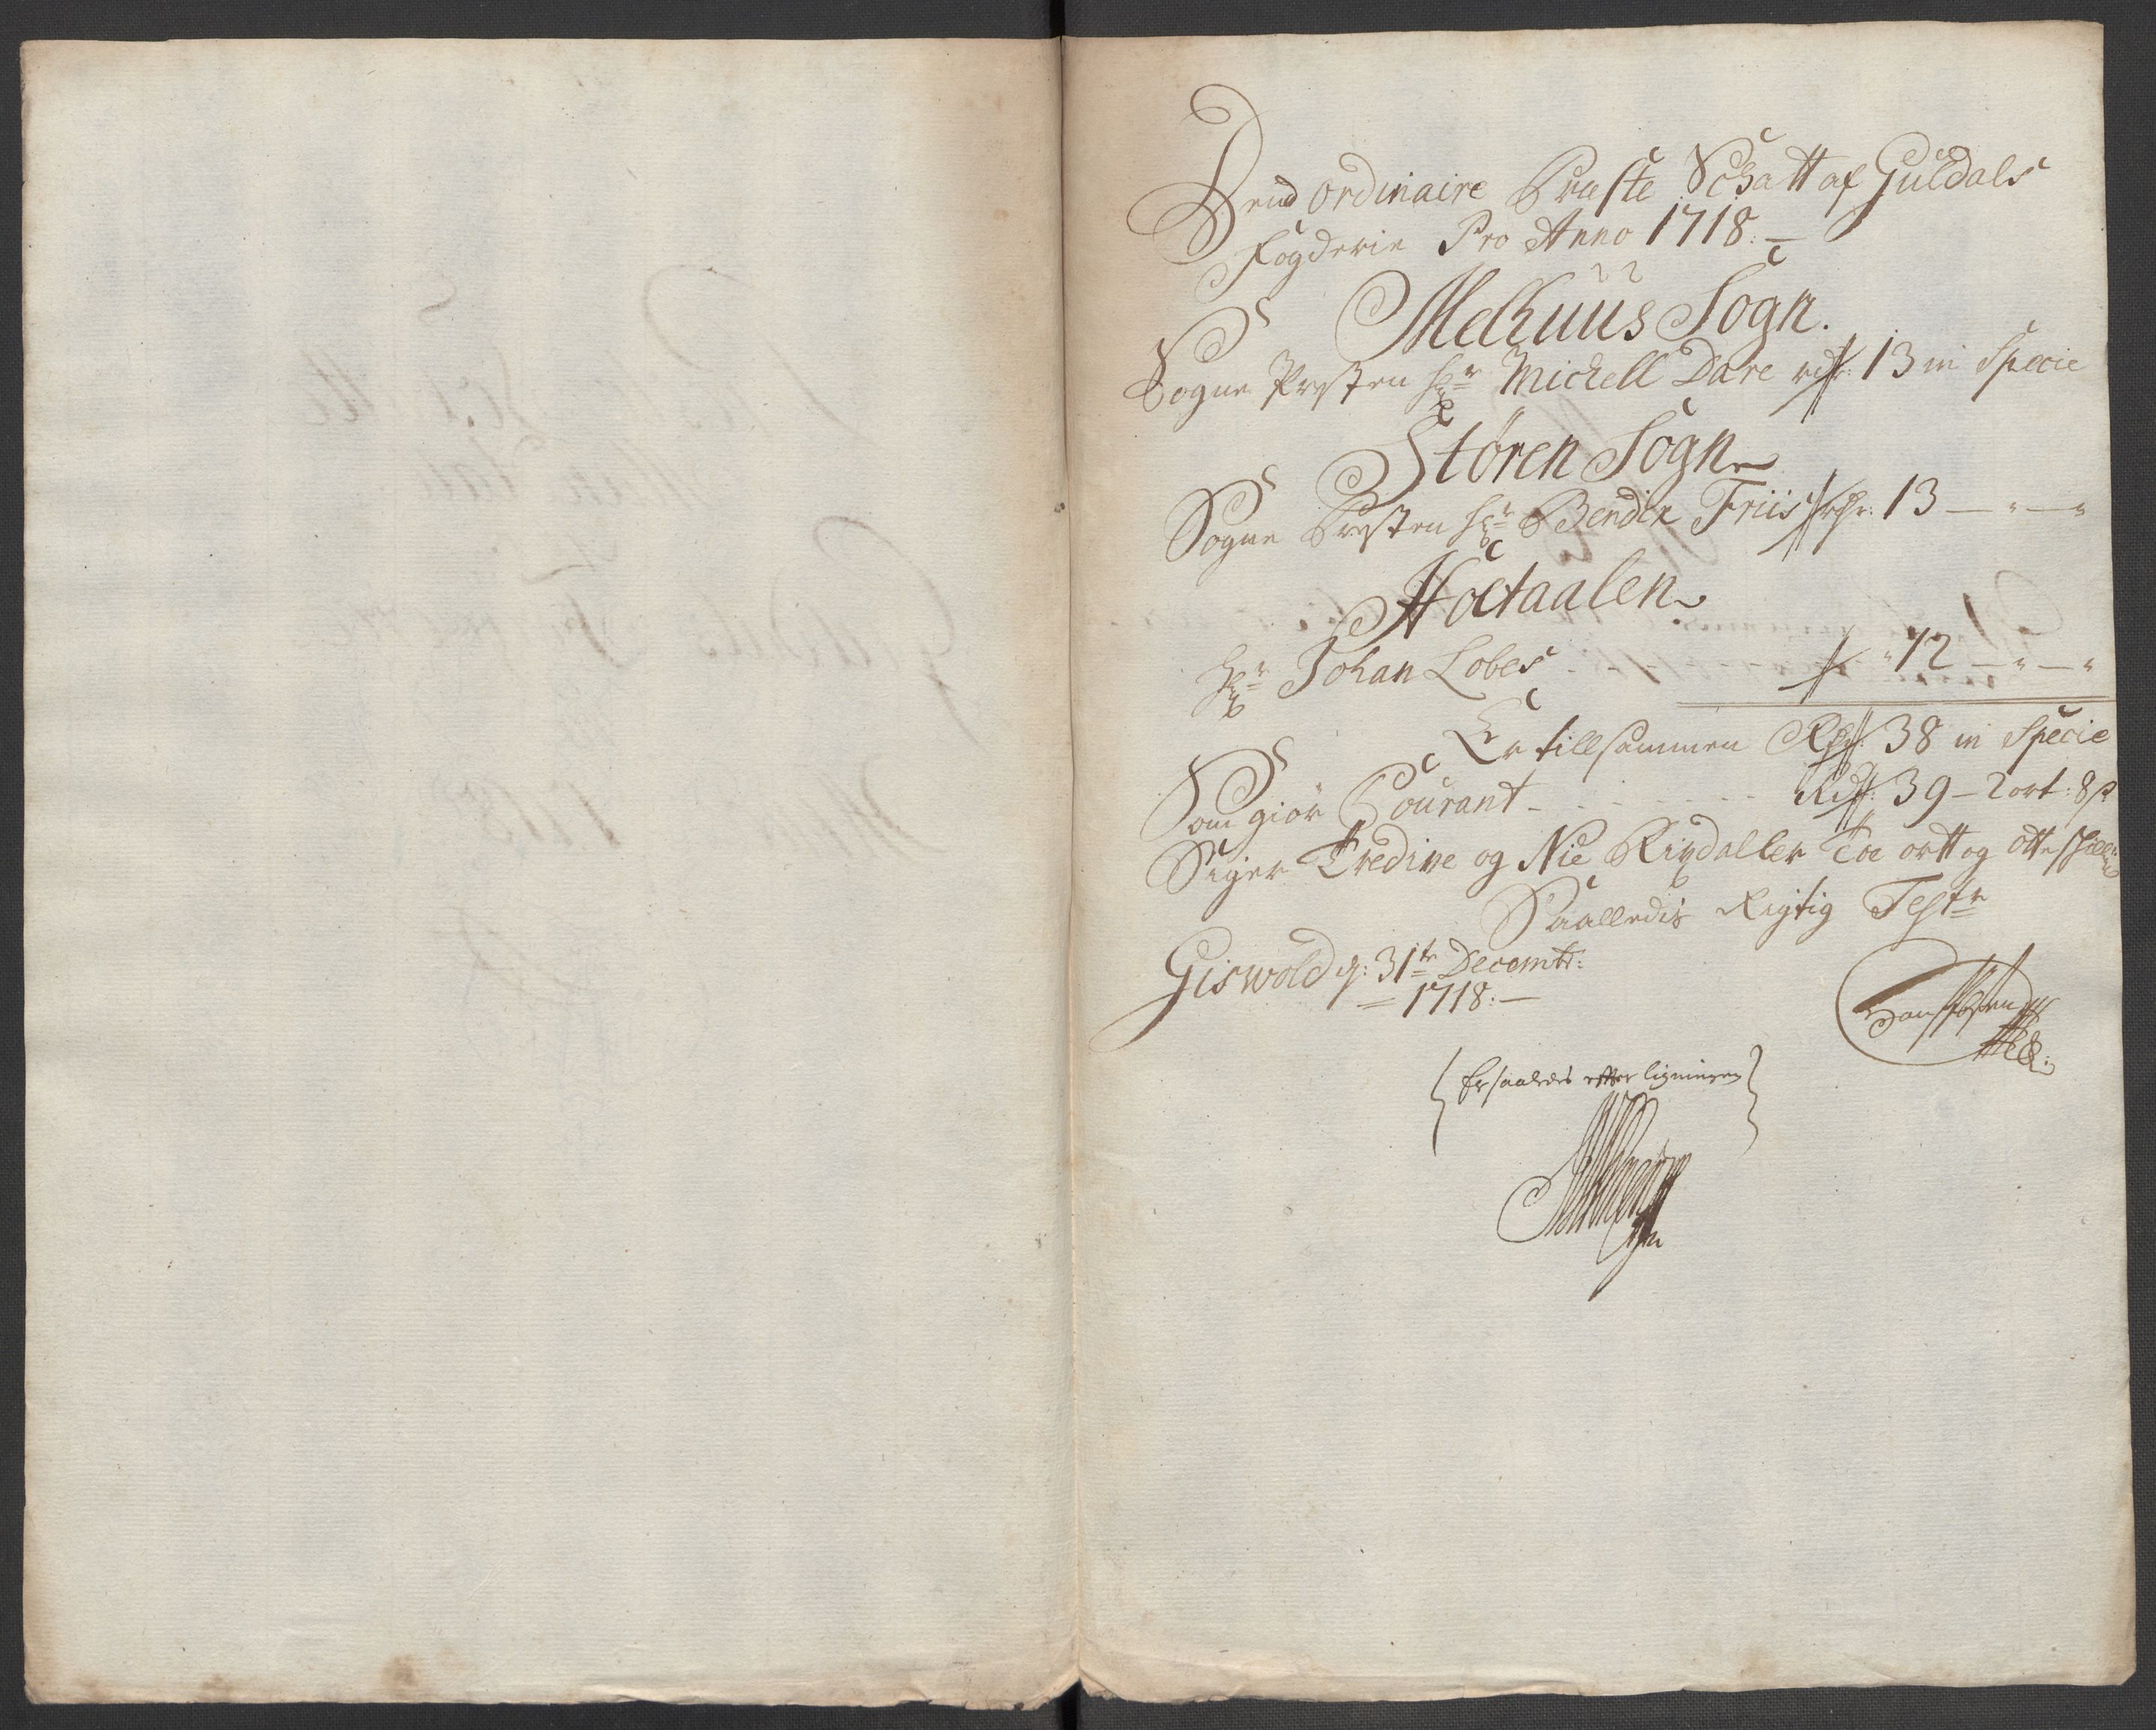 Dend Ordinaire Præste Schatt af Guldals
Fogderie Pro Anno 1718.—
Melhuus Sogn.
Sogne Præsten Hr Michell Dare rdr: 13 in Specie
Støren Sogn
Sogne Præsten Hr Bendix Friis rdr: 13 — " — "
Holtaalen
Hr Johan Lobes - " 12 — " — "
Er tillsammen Rdr: 38 in Specie
Som giør Courant - - - - - - - Rdr: 39 - 2 ort: 8 s
Siger Tredive og Nie Rixdaller Toe ortt og otte schill:
Saalledis Rigtig Test
Giswold d: 31te Decembr:
1718:—
Er saaledis effter ligningen